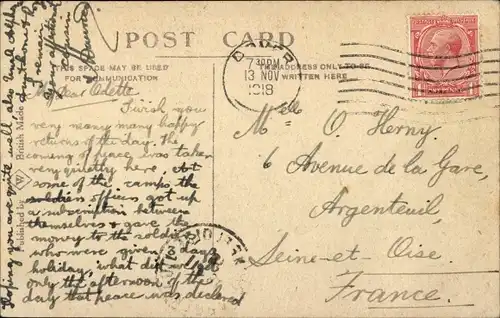 POST CARD
THIS SPACE MAY BE USED
FOR COMMUNICATION
THE ADDRESS ONLY TO BE
WRITTEN HERE
DOVER
7.30PM
13 NOV
1918
My dear Odette
I wish you
very many many happy
returns of the day. The
coming of peace was taken
very quietly here, At
some of the camps the
soldiers officers got up
a subscription between
themselves & gave the
money to the soldiers
who were given days
holiday, what did we get
only the afternoon of the
day that peace was declared
Hoping you are quite well, also
I remain
your affectionate
cousin
Published by W British Made
Melle O. Herny
6 Avenue de la Gare,
Argenteuil,
Seine-et-Oise.
France.